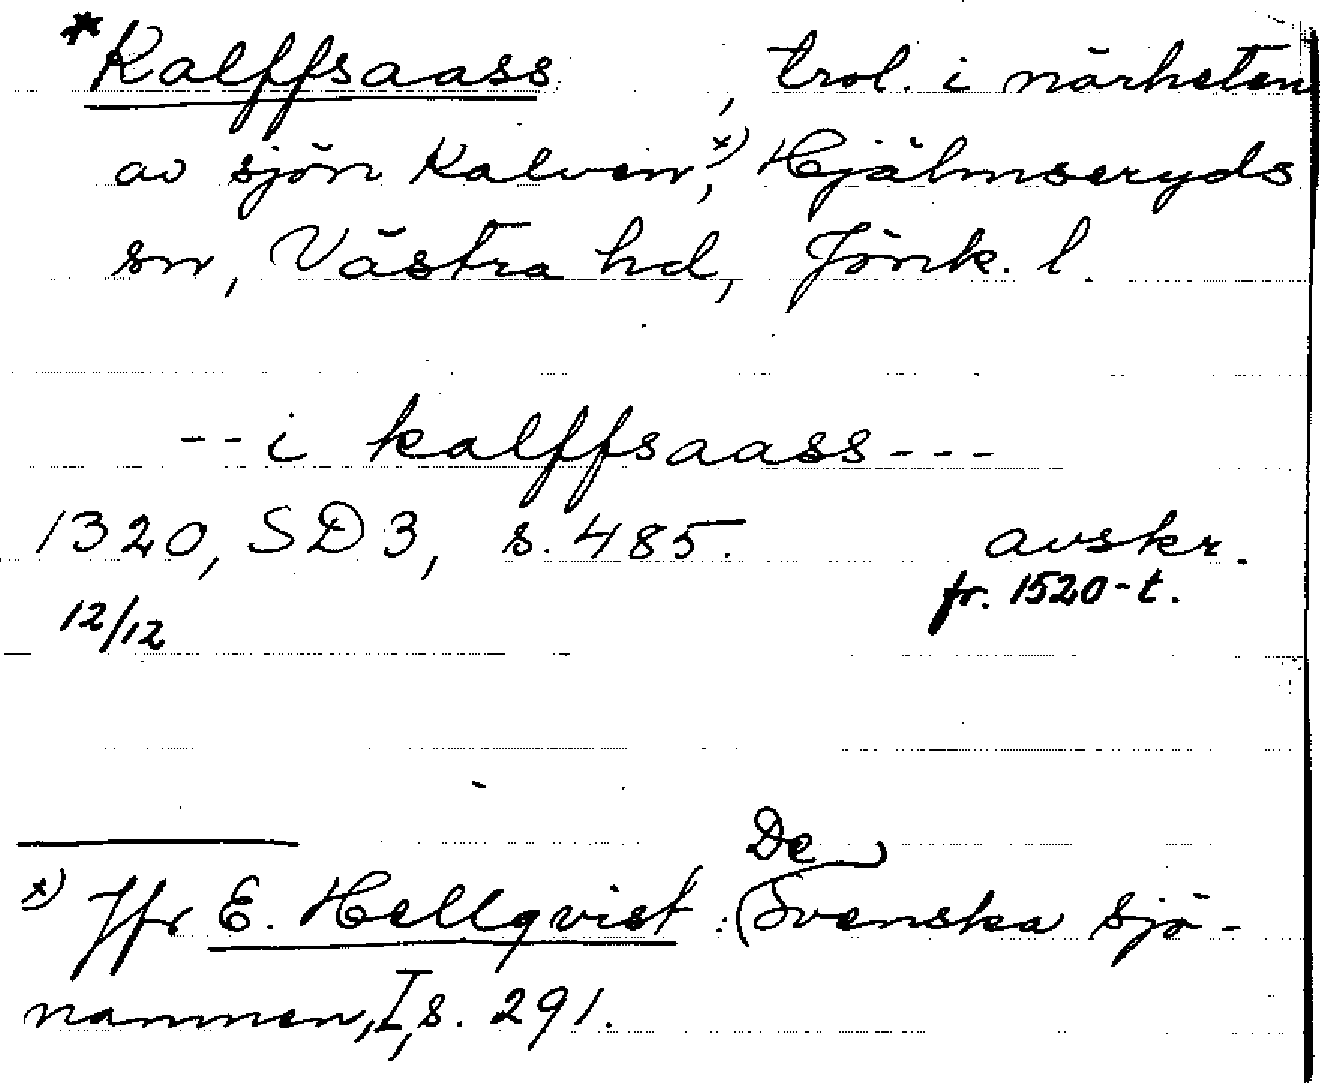 *Kalffsaass, trol. i närheten
av sjön Kalven,x) Hjälmseryds
sn, Västra hd, Jönk. l.
-- i kalffsaass ---
1320, SD 3, s. 485. avskr.
12/12 fr. 1520-t.
x) Jfr E. Hellqvist: De Svenska sjö-
namnen, I, s. 291.